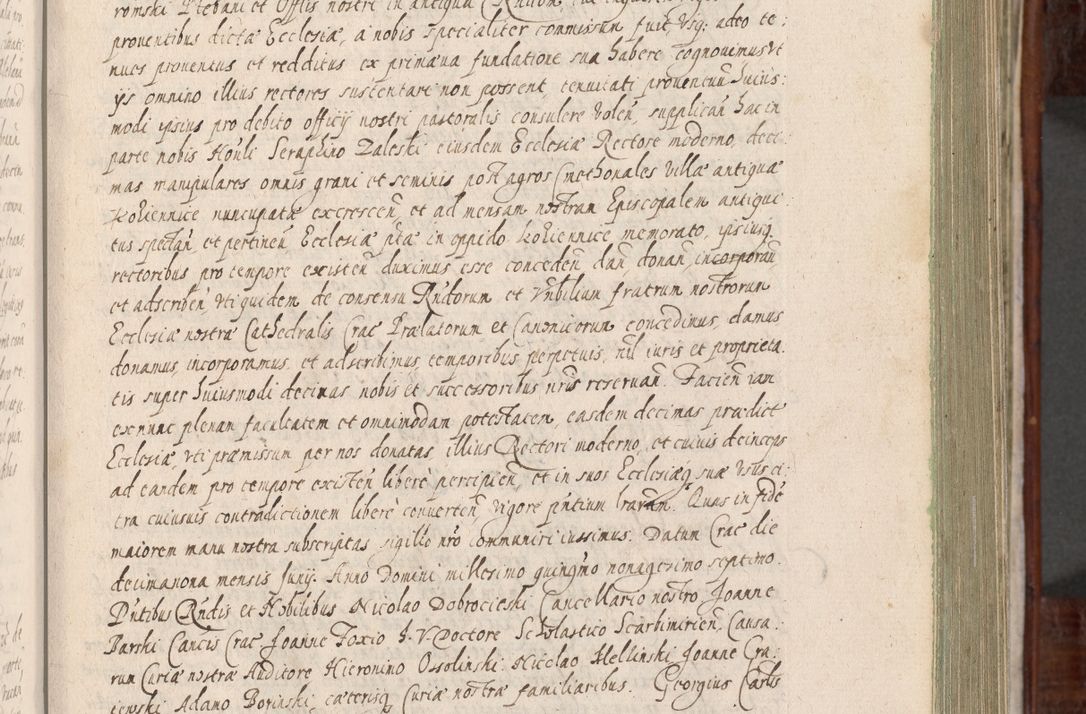 romski Plebani et Offlis nostri in antiqua
prouentibus dictæ Ecclesiæ, a nobis specialiter commissum fuit, Vsq; adeo te:
nues prouentus et redditus ex primæua fundatione sua habere cognouemus Vt
ys omnino illius rectores sustentari non possent, tenuitati prouentuũ huius:
modi ipsius pro debito officÿ nostri pastoralis consulere Volen̄, supplican̄ hac in
parte nobis Honli Seraphino Zaleski eiusdem Ecclesiæ Rectore moderno, deci:
mas manipulares omnis grani et seminis post agros Cmethonales Villæ antiquæ
Koziennice nuncupatæ excrescen̄, et ad mensam nostram Episcopalem antiqui:
tus spectan̄, et pertinen̄ Ecclesiæ p̄tæ in oppido Koziennice memorato, ipsiusq̨
rectoribus pro tempore existen̄ duximus esse conceden̄ dan̄, donan̄, incorporan̄
et adscriben̄, Vti quidem de consensu Rn̄dorum et Vn̄bilium fratrum nostrorum
Ecclesiæ nostræ Cathedralis Crac Prælatorum et Canonicorum concedimus, damus
donamus, incorporamus, et adscribimus, temporibus perpetuis, nil iuris et proprieta:
tis super huiusmodi decimas nobis et successoribus nr̄is reseruan̄. Facien̄ iam
exnunc plenam facultatem et omnimodam potestatem, easdem decimas prædictæ
Ecclesiæ, vti præmissum per nos donatas illius Rectori moderno, et cuiuis deinceps
ad eandem pro tempore existen̄ liberè percipien̄, et in suos Ecclesiæq̨ suæ Vsus ci:
tra cuiusuis contradictionem liberè conuerten̄, vigore p̄ntium lrarum. Quas in fidē
maiorem manu nostra subscriptas sigillo nr̄o communiri iussimus. Datum Crac die
decimanona mensis Junÿ. Anno Domini millesimo quingm̄o nonagesimo septimo.
Pn̄tibus Rn̄dis et Nobilibus Nicolao Dobrocieski Cancellario nostro, Joanne
Barski Canc̄is Crac Joanne Foxio J. V. Doctore Scholastico Scarbimirien̄, Causa:
rum Curiæ nostræ Auditore Hieronimo Ossolinski Nicolao Mellinski Joanne Cra:
iewski Adamo Borinski, cæterisq̨ Curiæ nostræ familiaribus. Georgius Carlis